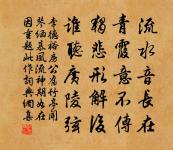 流水音長在
青霞意不傳
獨悲形解後
誰聽廣陵弦
李德裕房公舊竹亭聞
琴緬慕風流神期如在
因重題此作詞典網集